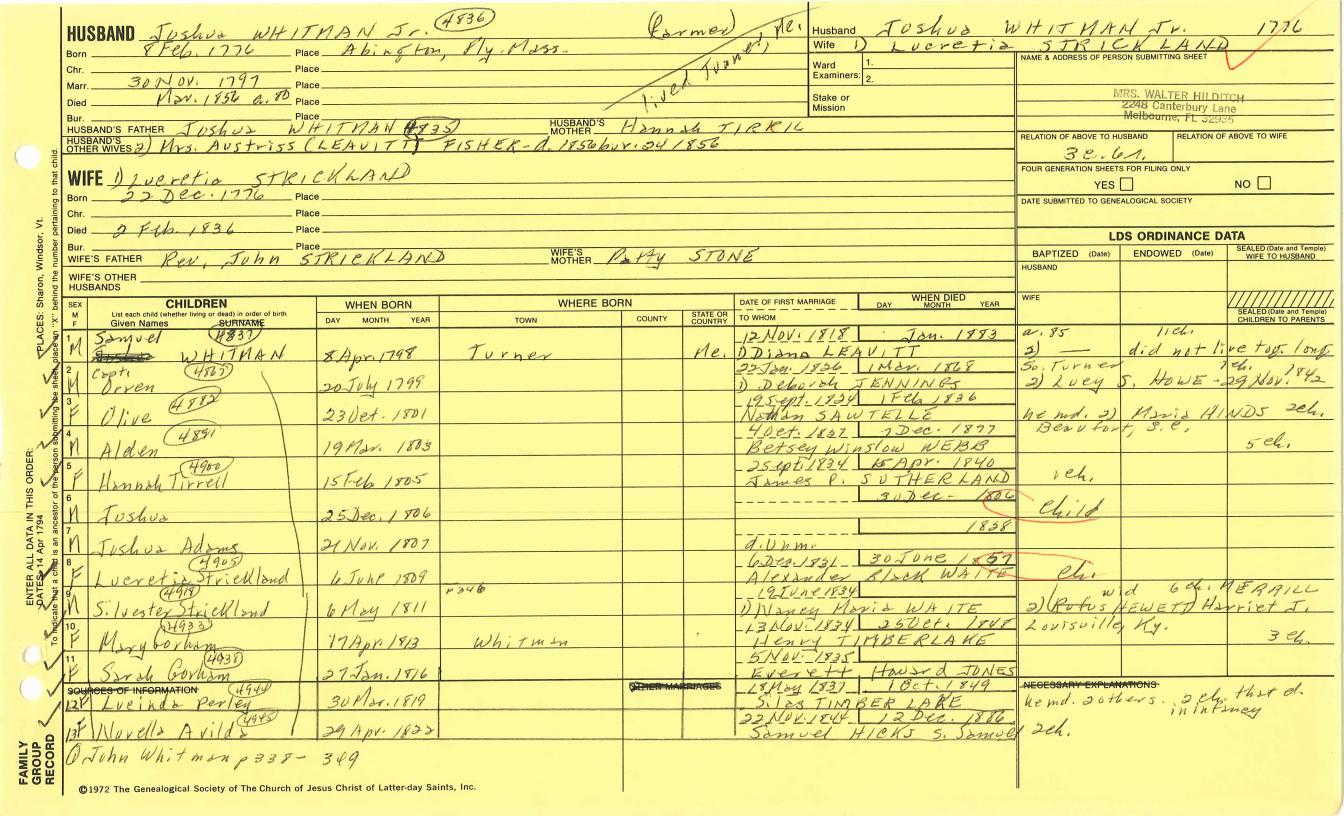 HUSBAND Joshua WHITMAN Jr. 4836 (Farmer)
Born 8 Feb. 1776 Place Abington, Ply. Mass.
Chr. Place
Marr. 30 Nov. 1797 Place
Died Mar. 1856 a. 80 Place
Bur. Place
lived Turner, Me.
HUSBAND'S FATHER Joshua WHITMAN 4835 HUSBAND'S MOTHER Hannah TIRRIL
HUSBAND'S OTHER WIVES 2) Mrs. Austriss (LEAVITT) FISHER - d. 1856 bur. 24 1856
WIFE 1) Lucretia STRICKLAND
Born 22 Dec. 1776 Place
Chr. Place
Died 2 Feb. 1836 Place
Bur. Place
WIFE'S FATHER Rev. John STRICKLAND WIFE'S MOTHER Patty STONE
WIFE'S OTHER HUSBANDS
Husband Joshua WHITMAN Jr. 1776
Wife 1) Lucretia STRICKLAND
Ward Examiners: 1.
2.
Stake or Mission
NAME & ADDRESS OF PERSON SUBMITTING SHEET
MRS. WALTER HILDITCH
2248 Canterbury Lane
Melbourne, FL 32935
RELATION OF ABOVE TO HUSBAND RELATION OF ABOVE TO WIFE
FOUR GENERATION SHEETS FOR FILING ONLY
YES NO
DATE SUBMITTED TO GENEALOGICAL SOCIETY
LDS ORDINANCE DATA
BAPTIZED (Date) ENDOWED (Date) SEALED (Date and Temple) WIFE TO HUSBAND
HUSBAND
WIFE
SEALED (Date and Temple) CHILDREN TO PARENTS
SEX M F
CHILDREN
List each child (whether living or dead) in order of birth
Given Names SURNAME
WHEN BORN
DAY MONTH YEAR
WHERE BORN
TOWN COUNTY STATE OR COUNTRY
DATE OF FIRST MARRIAGE
TO WHOM
WHEN DIED
DAY MONTH YEAR
1 M Samuel 4837 WHITMAN 8 Apr. 1798 Turner Me. 12 Nov. 1818 Jan. 1883 a. 85 1 ch.
1) Diana LEAVITT 2) — did not live tog. long
2 M Capt. Orren 4865 20 July 1799 22 Jan. 1826 1 Mar. 1868 So. Turner 7 ch.
1) Deborah JENNINGS 2) Lucy S. HOWE - 29 Nov. 1842
3 F Olive 4882 23 Oct. 1801 19 Sept. 1824 1 Feb 1836
Nathan SAWTELLE he md. 2) Maria HINDS 2 ch.
4 M Alden 4891 19 Mar. 1803 4 Oct. 1837 7 Dec. 1877 Beaufort, S.C.
Betsey Winslow WEBB 5 ch.
5 F Hannah Tirrell 4900 15 Feb 1805 25 Sept 1834 15 Apr. 1840
James P. SUTHERLAND 1 ch.
6 M Joshua 25 Dec. 1806 30 Dec - 1806 child
7 M Joshua Adams 21 Nov. 1807 1828
d. unm.
8 F Lucretia Strickland 4905 6 June 1809 6 Dec. 1831 30 June 1857
Alexander Black WAITE ch.
9 M Silvester Strickland 4919 6 May 1811 p 346 19 June 1834 wid 6 ch. MERRILL
1) Nancy Maria WAITE 2) (Rufus HEWETT) Harriet J.
10 F Mary Gorham 4933 17 Apr. 1813 Whitman 13 Nov. 1834 25 Oct. 1848 Louisville, Ky.
Henry TIMBERLAKE 3 ch.
11 F Sarah Gorham 4938 27 Jan. 1816 5 Nov. 1835
Everett Howard JONES
SOURCES OF INFORMATION OTHER MARRIAGES NECESSARY EXPLANATIONS
12 F Lucinda Perley 4944 30 Mar. 1819 18 May 1837 1 Oct. 1849
Silas TIMBERLAKE he md. 2 others. 2 ch. that d. in infancy
13 F Novella Avilda 4945 29 Apr. 1822 22 Nov. 1844 12 Dec. 1886
Samuel HICKS S. Samuel 2 ch.
1) John Whitman p 338 - 349
©1972 The Genealogical Society of The Church of Jesus Christ of Latter-day Saints, Inc.
FAMILY GROUP RECORD
ENTER ALL DATA IN THIS ORDER:
DATES: 14 Apr 1794 PLACES: Sharon, Windsor, Vt.
To indicate that a child is an ancestor of the person submitting the sheet, place an "X" behind the number pertaining to that child.